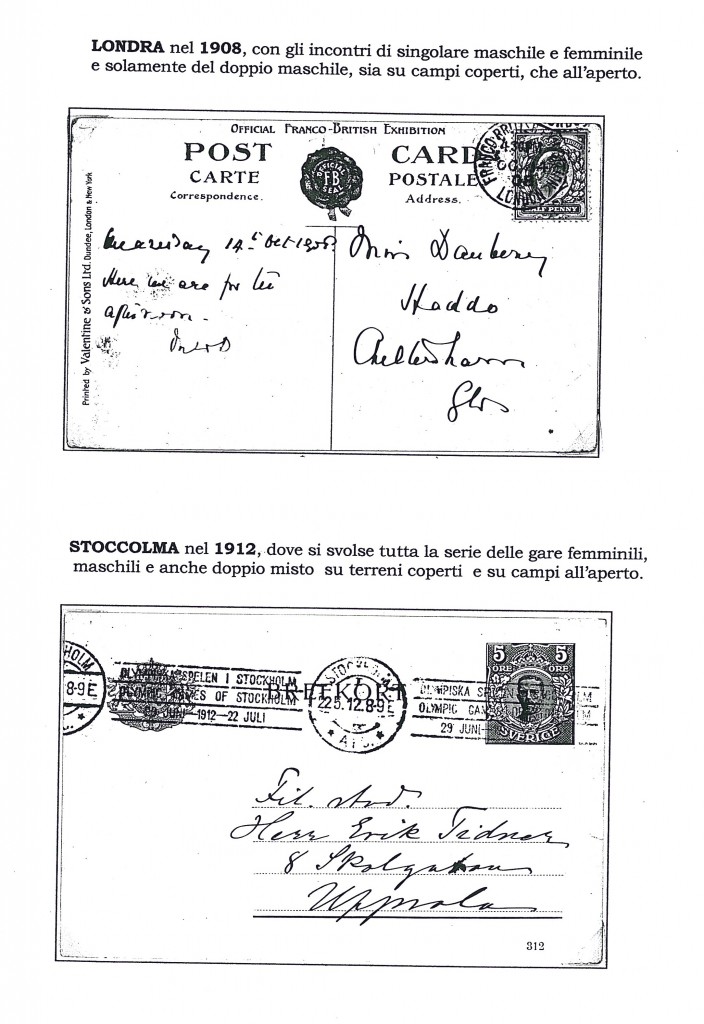 LONDRA nel 1908, con gli incontri di singolare maschile e femminile
e solamente del doppio maschile, sia su campi coperti, che all'aperto.
OFFICIAL FRANCO-BRITISH EXHIBITION
POST CARD
CARTE POSTALE
Correspondence. Address.
OFFICIAL
FB
SEAL
LONDON
HALF PENNY
Printed by Valentine & Sons Ltd. Dundee, London & New York
14th Oct 1908
Here we are for the
afternoon.
Miss Daubeny
Haddo
Cheltenham
Glos
STOCCOLMA nel 1912, dove si svolse tutta la serie delle gare femminili,
maschili e anche doppio misto su terreni coperti e su campi all'aperto.
HOLM
8-9 E
SPELEN I STOCKHOLM
OF STOCKHOLM
1912—22 JULI
BREFKORT
12.8-9E
OLYMPISKA
OLYMPIC
29 JUNI
5 5
ÖRE ÖRE
SVERIGE
Fil. stud.
Herr Erik Tidner
8 Skolgatan
Uppsala
312